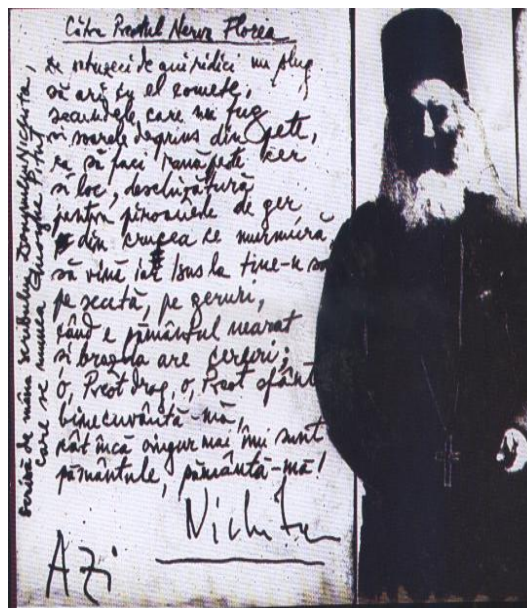 Către Preotul Nerva Florea
de ani ridici un plug
să ari cu el comete,
secundele care nu fug
și soarele deprins din pete,
să faci rană peste cer
și loc, deschizătură
pentru piroanele de ger
din crucea ce murmură
să vină iar Isus la tine-n
pe secetă, pe geruri,
când e pământul nearat
și brazda are ceruri;
o, Preot drag, o, Preot sfânt
binecuvântă-mă,
cât încă singur mai îmi sunt
pământule, pământă-mă!
Nichita
Azi
scrisă de mâna scribului Domnului Nichita,
care se numea Gheorghe Pituț